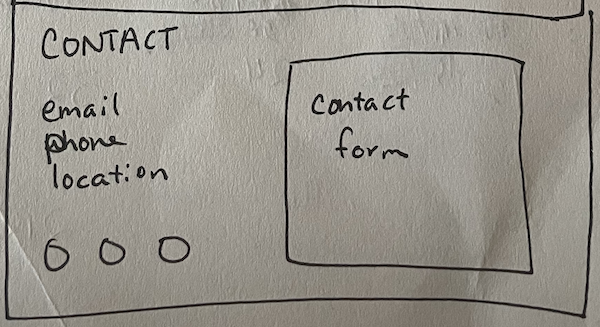 CONTACT
email
phone
location
contact
form